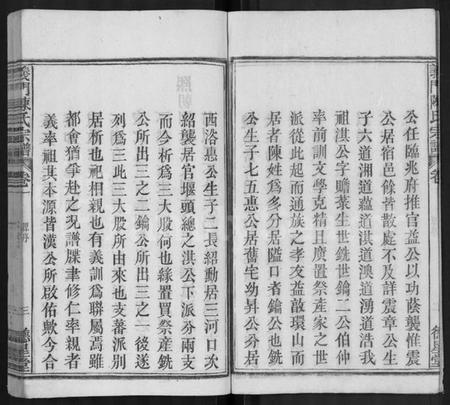 公任臨兆府推官益公以功蔭襲惟震
公居宿邑餘皆散處不及詳震章公生
子六道湘道蘊道淇道澳道湧道浩我
祖淇公字贍菉生世銑世鑰二公伯仲
率前訓文學克精且廣置祭產家之世
派從此起而通族之孝友益敵環山而
居者陳姓爲多分居隘口者鑰公也銑
公生子七五惠公居舊宅幼昇公分居
西洛惠公生子二長紹勳居三河口次
紹襲居官堰頭總之淇公下派分兩支
而今析爲三大股何也緣置買祭產銑
公所出三之二鑰公所出三之一後遂
列爲三此三大股所由來也支蕃派別
居析也祀相親也有義訓爲聯屬焉雖
都會猶爭赴之況譜牒聿修仁率親者
義率祖其本源昔漢公所啟佑數今合
義門陳氏宗譜 卷
三
德星堂
義門陳氏宗譜 卷
德星堂